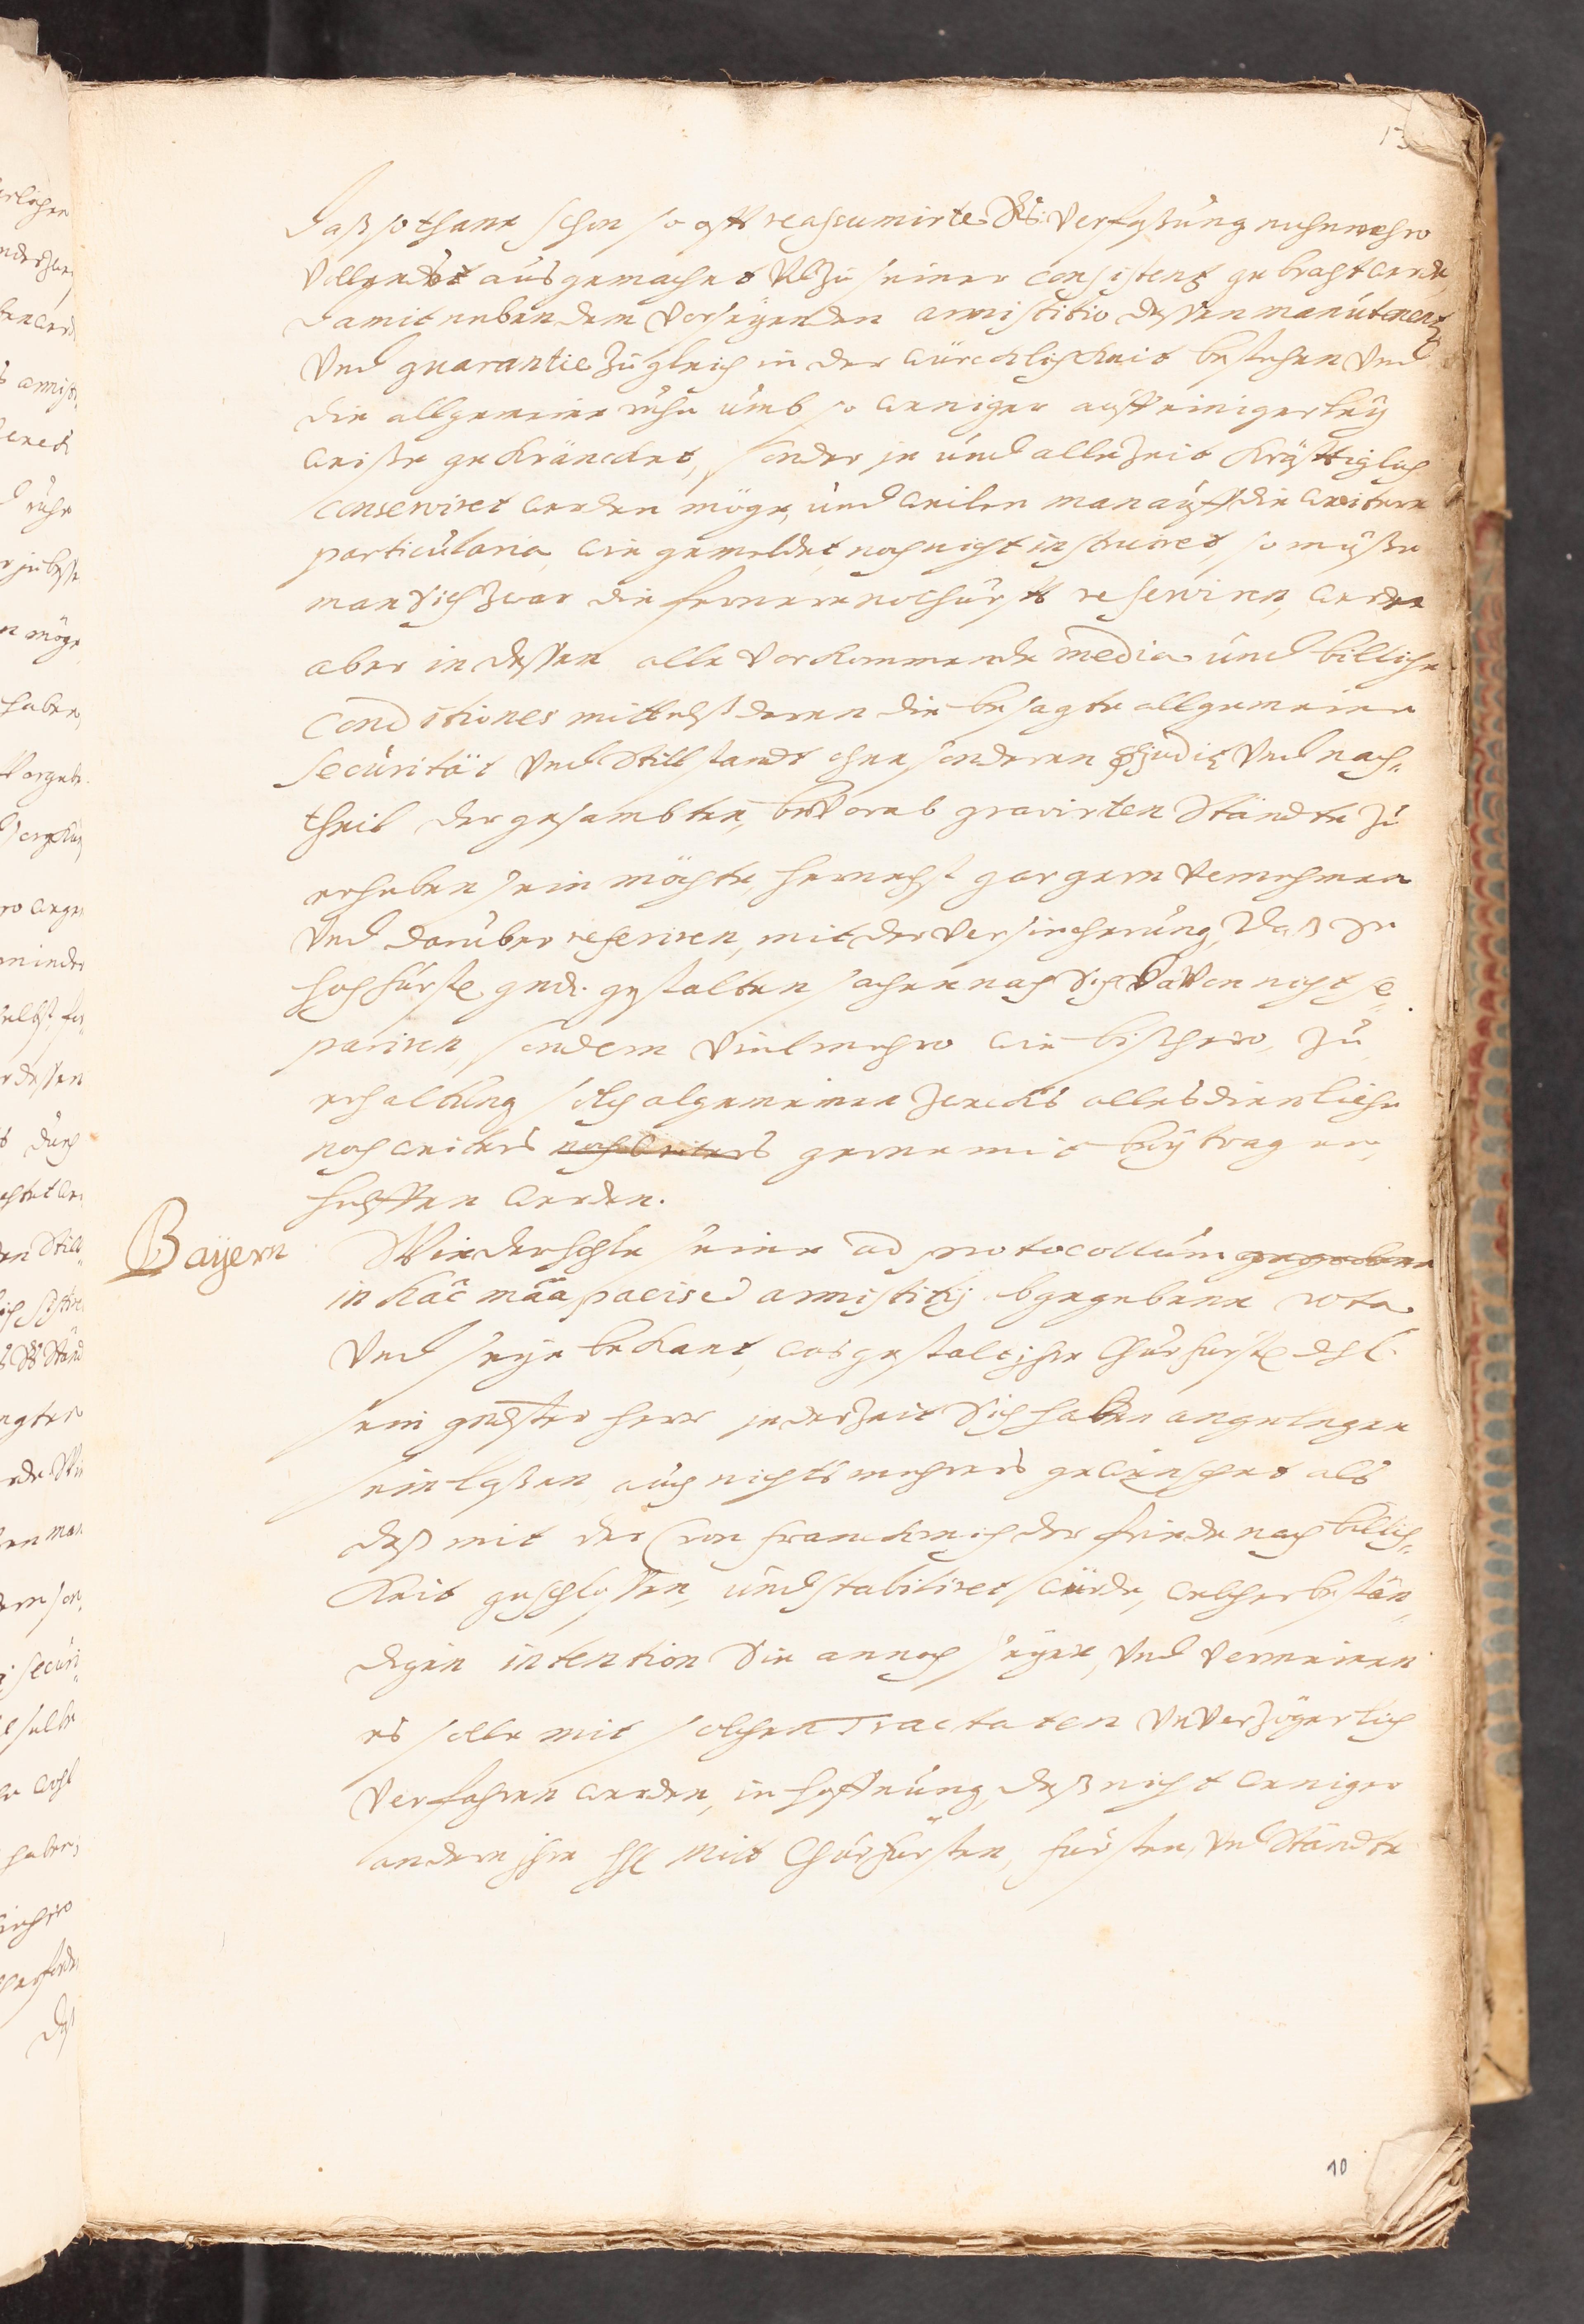 13
daß sothane schon so offt reassumirte Rs: Verfaßung nuhnmehro
Vollendts ausgemachet Undt zu seiner consistentz gebracht werde,
damit neben dem Vorseyenden armistitio dessen manutenentz
Und guarantie zugleich in der würcklichkeit bestehen Und
die allgemeine ruhe umb so weniger auff einigerley
weiße gekräncket, sonder je und allezeit kräfftiglich
conserviret werden möge, und weilen man auff die weitere
particularia, wie gemeldet, noch nicht instruiret, so müße
man sich zwar die fernere nothurfft reserviren, werde
aber in dessen alle Vorkommende media und billiche
Conditiones mittelst deren die besagte allgemeine
Securität Und Stillstandt ohne sonderen präjudiz Und nach„
theil der gesambten, bevorab gravirten Ständte zu
erheben sein möchte, hernechst gar gern Vernehmen
Und darüber referiren, mit der Versicherung, daß Ihr
hochfürstl. gnd. gestalten sachen nach sich da Von nicht se„
pariren, sondern Vielmehro wie bißhero, zu
erhaltung solch algemeinen zwecks alles dienliche
noch weiters noch weiters gerne mit beytragen,
helffen werden.
Bayern
Wiederhohle seine ad protocollum gegebene
in hac maa pacis et armistitij abgegebene vota
Und seye bekant, was gestalt ihre Churfürstl. dhl.
sein gndster herr jederzeit Sich haben angelegen
sein laßen auch nichts mehrers gewünschet als
daß mit der Cron Franckreich der friede nach billich„
keit geschlossen, und stabiliret würde, welcher bestän„
digen intention Sie annoch seyen, Und Vermeinen
es solle mit solchen Tractaten Unverzögerlich
Verfahren werden, in hoffnung, daß nicht weniger
andere ihre hhl Mitt Churfürsten, fürsten, Und Ständte
10